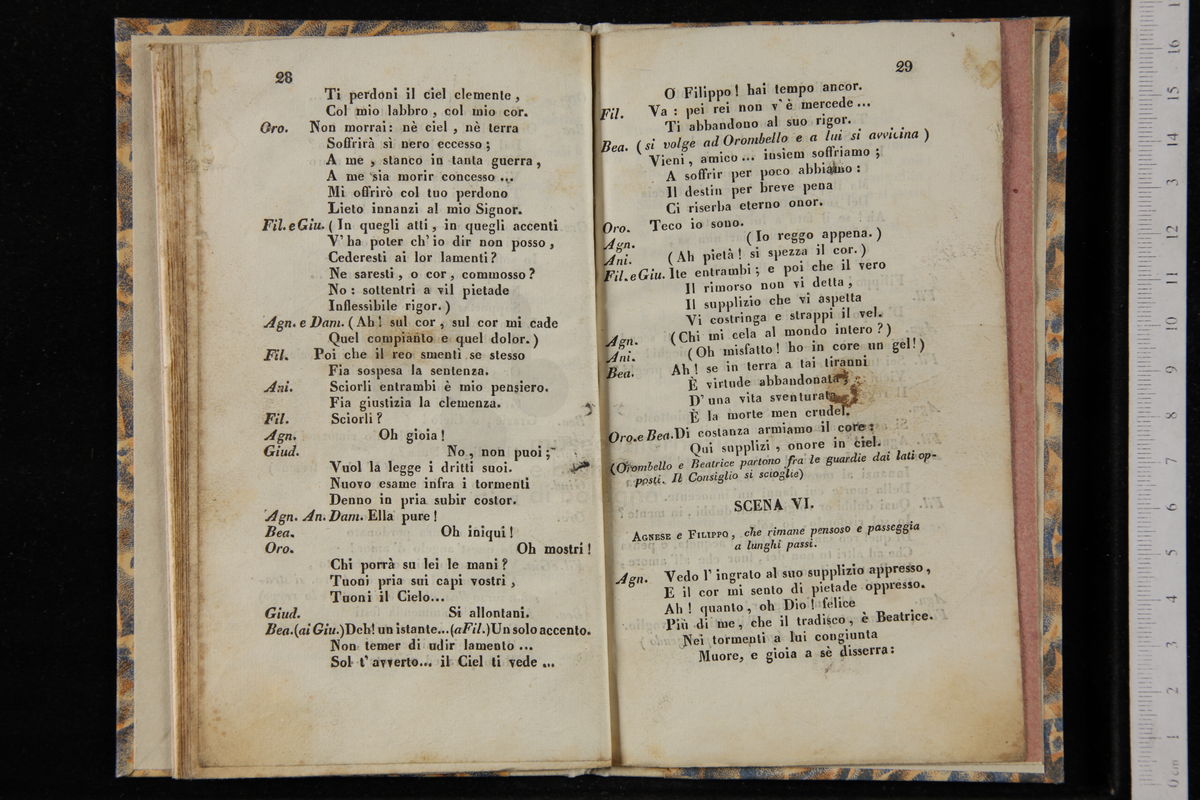 28
Ti perdoni il ciel clemente ,
Col mio labbro , col mio cor.
Oro. Non morrai: nè ciel , nè terra
Soffrirà sì nero eccesso ;
A me , stanco in tanta guerra ,
A me sia morir concesso ...
Mi offrirò col tuo perdono
Lieto innanzi al mio Signor.
Fil. e Giu. ( In quegli atti , in quegli accenti
V'ha poter ch'io dir non posso ,
Cederesti ai lor lamenti ?
Ne saresti , o cor , commosso ?
No : sottentri a vil pietade
Inflessibile rigor. )
Agn. e Dam. ( Ah ! sul cor , sul cor mi cade
Quel compianto e quel dolor. )
Fil. Poi che il reo smentì se stesso
Fia sospesa la sentenza.
Ani. Sciorli entrambi è mio pensiero.
Fia giustizia la clemenza.
Fil. Sciorli ?
Agn. Oh gioia !
Giud. No , non puoi ;
Vuol la legge i dritti suoi.
Nuovo esame infra i tormenti
Denno in pria subir costor.
Agn. An. Dam. Ella pure !
Bea. Oh iniqui !
Oro. Oh mostri !
Chi porrà su lei le mani ?
Tuoni pria sui capi vostri ,
Tuoni il Cielo...
Giud. Si allontani.
Bea.(ai Giu.)Deh! un istante...(a Fil.)Un solo accento.
Non temer di udir lamento ...
Sol t'avverto... il Ciel ti vede ...
29
O Filippo ! hai tempo ancor.
Fil. Va : pei rei non v'è mercede ...
Ti abbandono al suo rigor.
Bea. ( si volge ad Orombello e a lui si avvicina )
Vieni , amico ... insiem soffriamo ;
A soffrir per poco abbiamo :
Il destin per breve pena
Ci riserba eterno onor.
Oro. Teco io sono.
Agn. ( Io reggo appena. )
Ani. ( Ah pietà ! si spezza il cor. )
Fil. e Giu. Ite entrambi ; e poi che il vero
Il rimorso non vi detta ,
Il supplizio che vi aspetta
Vi costringa e strappi il vel.
Agn. ( Chi mi cela al mondo intero ? )
Ani. ( Oh misfatto ! ho in core un gel! )
Bea. Ah ! se in terra a tai tiranni
È virtude abbandonata ;
D'una vita sventurata
È la morte men crudel.
Oro.e Bea.Di costanza armiamo il core :
Qui supplizi , onore in ciel.
(Orombello e Beatrice partono fra le guardie dai lati op-
posti. Il Consiglio si scioglie)
SCENA VI.
AGNESE e FILIPPO , che rimane pensoso e passeggia
a lunghi passi.
Agn. Vedo l'ingrato al suo supplizio appresso ,
E il cor mi sento di pietade oppresso.
Ah ! quanto , oh Dio ! felice
Più di me , che il tradisco , è Beatrice.
Nei tormenti a lui congiunta
Muore, e gioia a sè disserra :